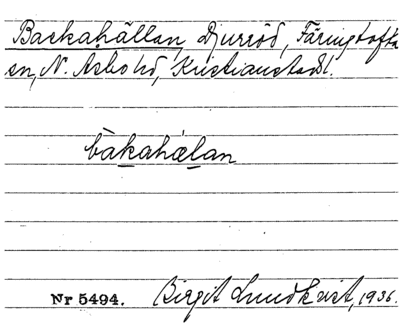 Backahällan, Djurröd, Färingtofta
sn, N. Åsbo hd, Kristianstads l.
bàkahǽlan
Nr 5494. Birgit Lundkvist, 1936.